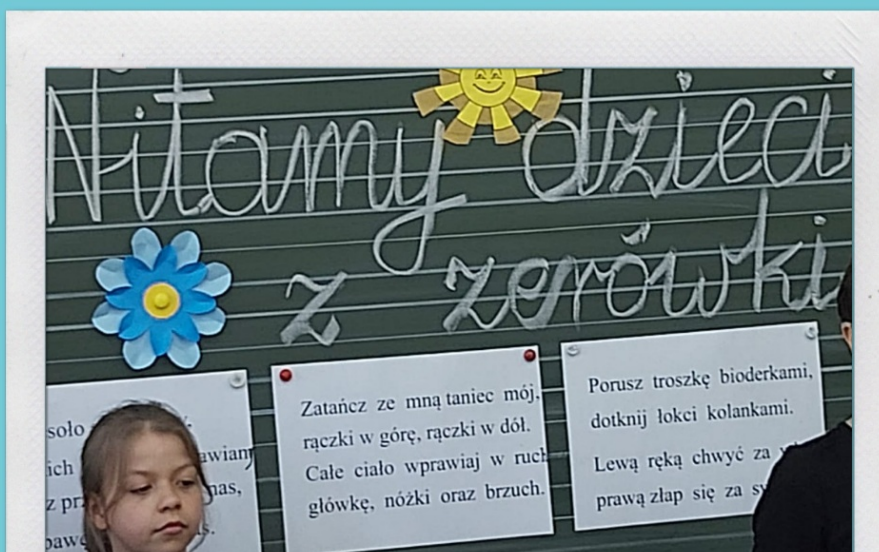 Witamy dzieci
z zerówki
soło
ich awiamy
z prz nas,
Zatańcz ze mną taniec mój,
rączki w górę, rączki w dół.
Całe ciało wprawiaj w ruch
główkę, nóżki oraz brzuch.
Porusz troszkę bioderkami,
dotknij łokci kolankami.
Lewą ręką chwyć za
prawą złap się za